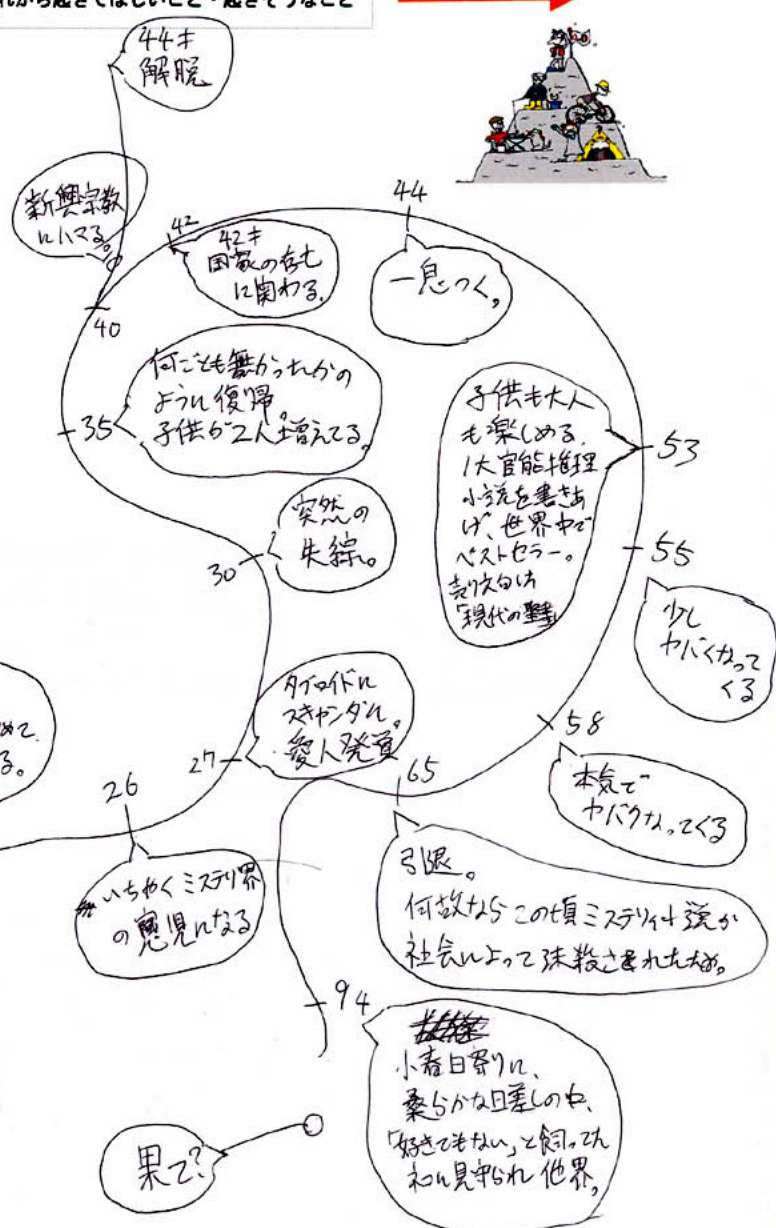 れから起きてほしいこと・起きそうなこと
44才
解脱
新興宗教
にハマる。
40
42
42才
国家の存亡
に関わる。
44
一息つく。
35
何ごとも無かったかの
ように復帰。
子供が2人増えてる。
30
突然の
失綜。
53
子供も大人
も楽しめる、
1大官能推理
小説を書きあ
げ、世界中で
ベストセラー。
売り文句は
「現代の聖書」
55
少し
ヤバくなって
くる
58
本気で
ヤバクなってくる
27
タブロイドに
スキャンダル。
愛人発覚
めて、
る。
26
いちやくミステリ界
の寵児になる
65
引退。
何故ならこの頃ミステリィ小説が
社会によって抹殺されたため。
94
小春日寄りに、
柔らかな日差しの中、
「好きでもない」と飼ってた
ネコに見守られ他界。
果て?